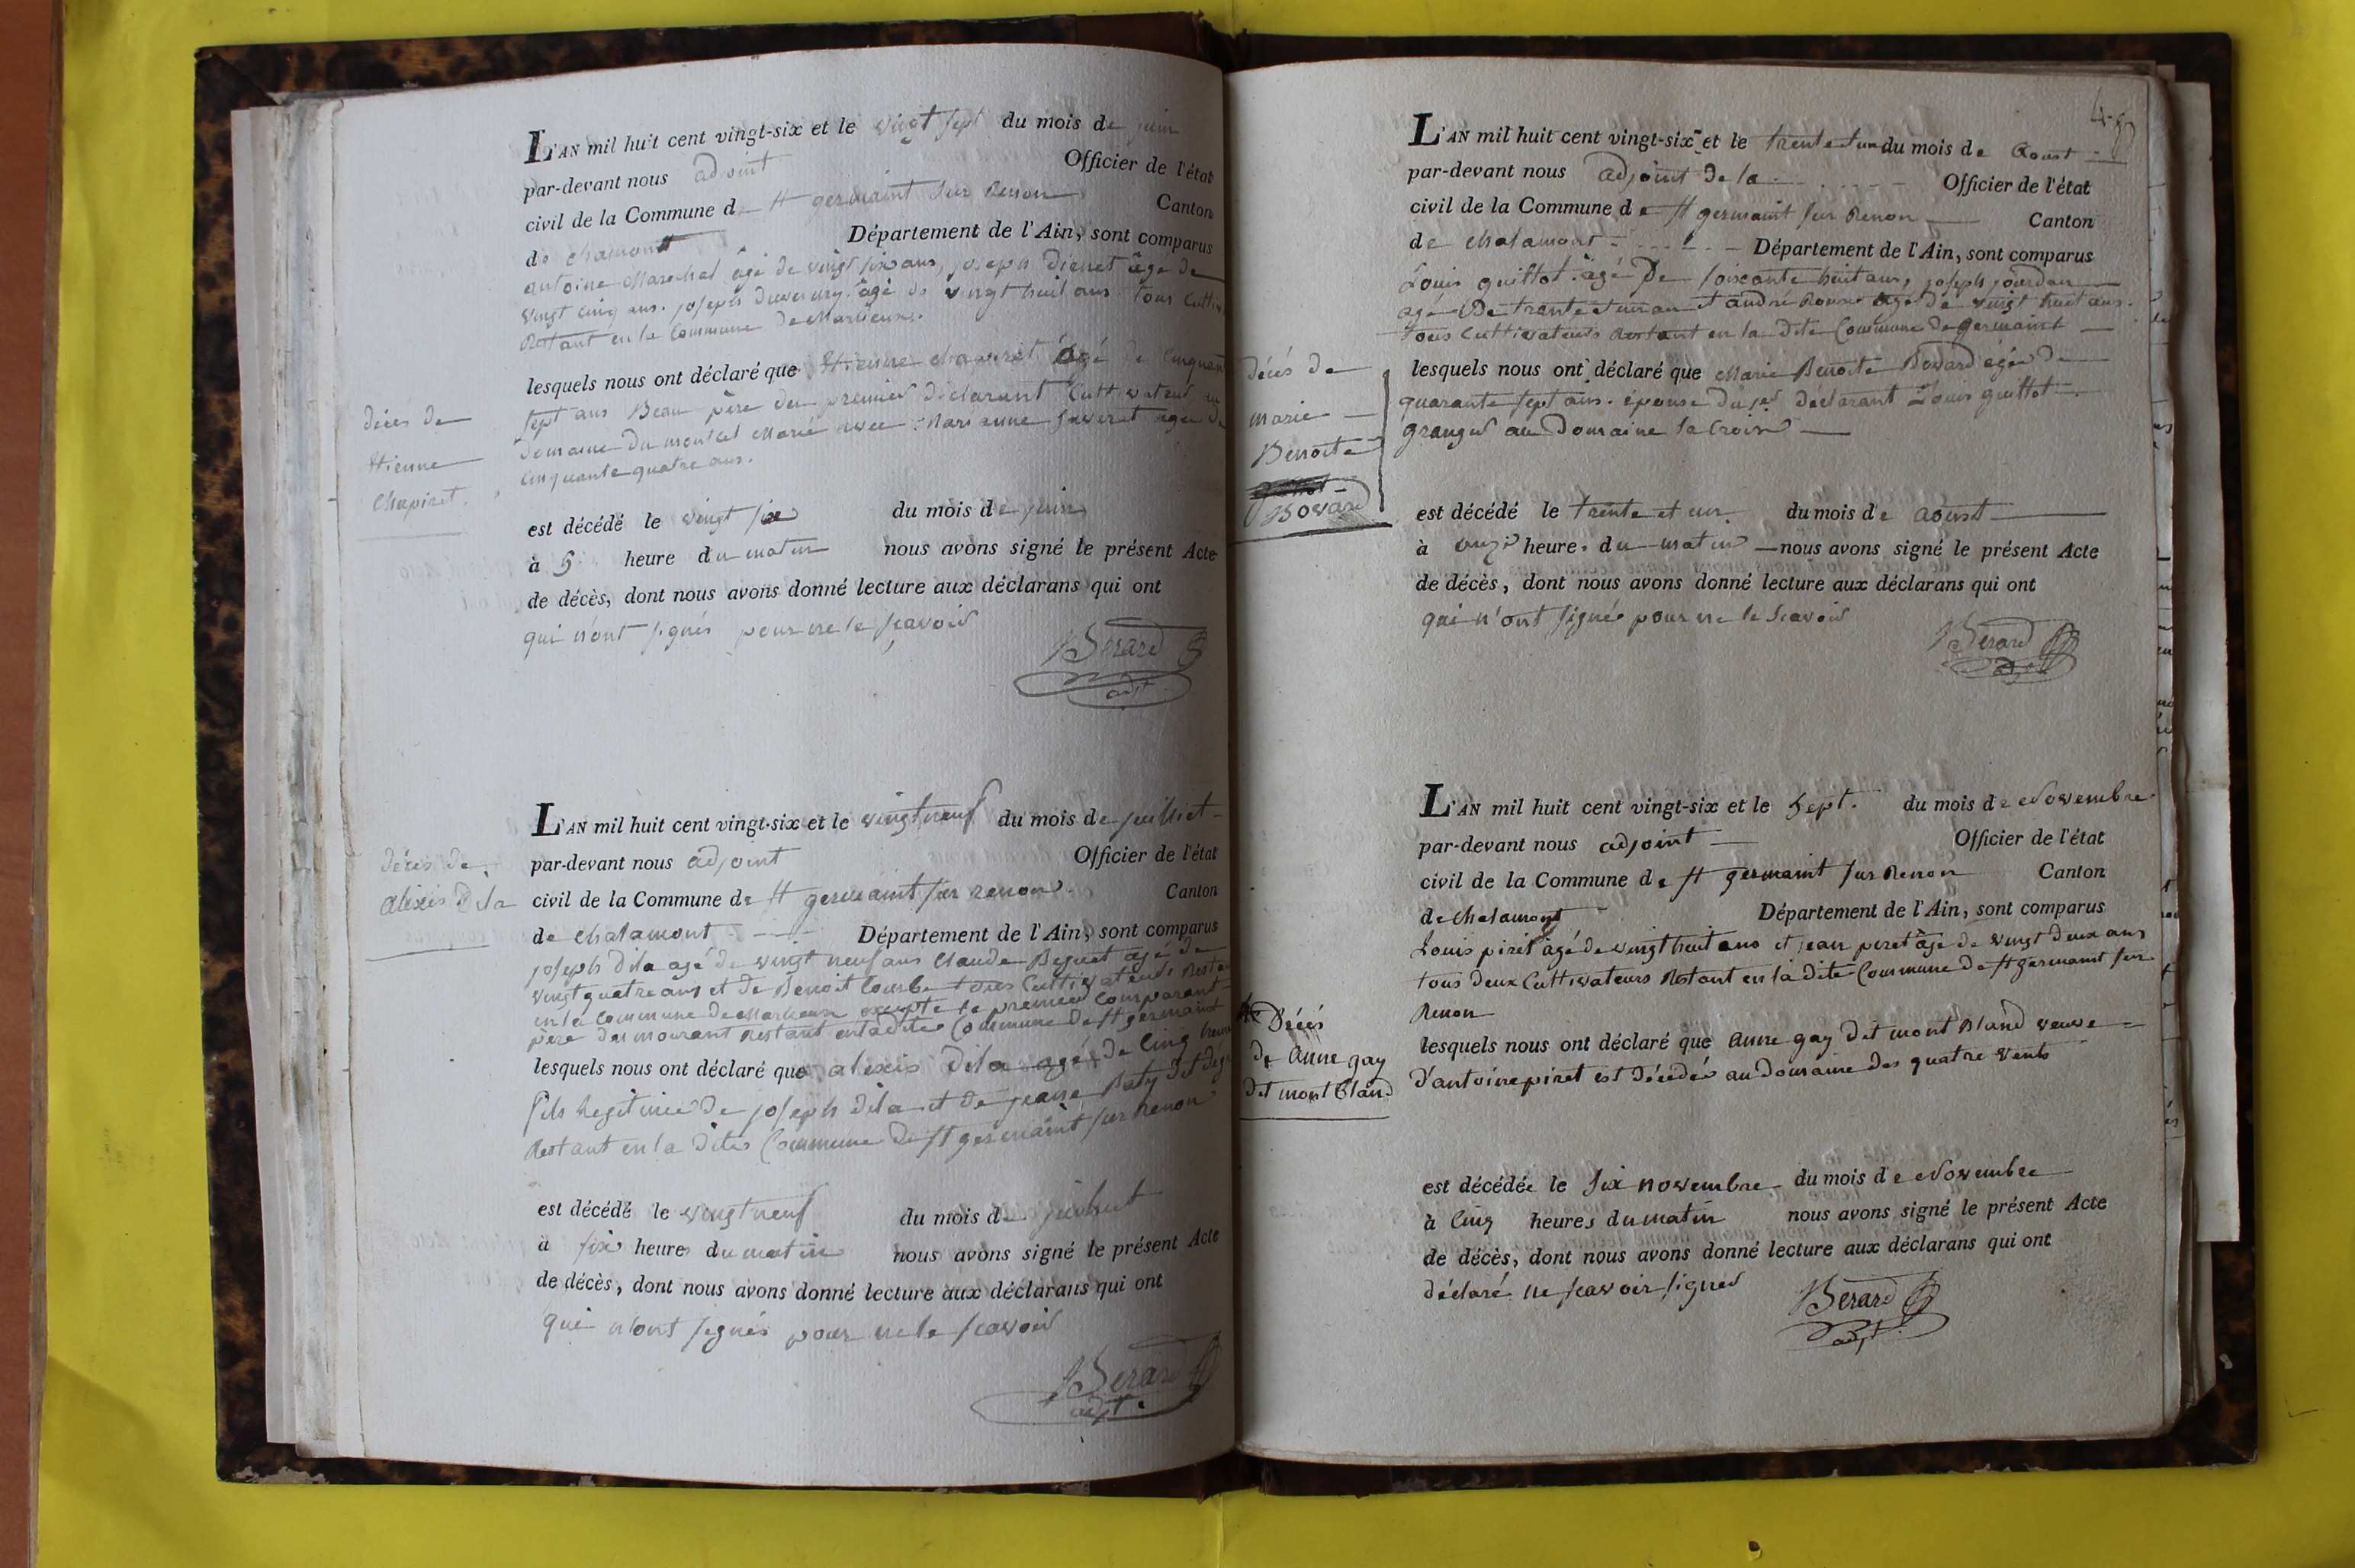 L'AN mil huit cent vingt-six et le vingt sept du mois de juin
par-devant nous adjoint Officier de l'état
civil de la Commune de st germaint sur Renon Canton
de chamont Département de l'Ain, sont comparus
antoine Marechal âgé de vingt six ans, joseph âge de
vingt cinq ans. joseph âgé de vingt huit ans tous
Restant en la Commune de Marlieux.
lesquels nous ont déclaré que Etienne âgé de
sept ans Beau père du premier déclarant
Domaine du montcel Marié avec Marianne agée de
cinquante quatre ans.
décès de
Etienne
Chapiret.
est décédé le vingt six du mois de juin
à 5 heure du matin nous avons signé le présent Acte
de décès, dont nous avons donné lecture aux déclarans qui ont
qui n'ont signés pour ne le scavoir
Berard
adjt
L'AN mil huit cent vingt-six et le vingt neuf du mois de juilliet
par-devant nous adjoint Officier de l'état
civil de la Commune de st germaint sur renon Canton
de chalamont Département de l'Ain, sont comparus
joseph Dila agé de vingt neuf ans Claude Beguet agé de
vingt quatre ans et de Benoit Combe tous Cultivateurs
en la Commune de Marlieux excepte le premier Comparant
père du mourant Restant en la dite Commune de st germaint
lesquels nous ont déclaré que alexis Dila agé de cinq
fils legitime de joseph dila et de jeanne
Restant en la dite Commune de st germaint sur renon
décès de
alexis Dila
est décédé le vingt neuf du mois de juilliet
à six heures du matin nous avons signé le présent Acte
de décès, dont nous avons donné lecture aux déclarans qui ont
qui n'ont signés pour ne le scavoir
Berard
adjt.
L'AN mil huit cent vingt-six et le trente et un du mois de Aoust
par-devant nous adjoint de la Officier de l'état
civil de la Commune de st germaint sur Renon Canton
de chalamont Département de l'Ain, sont comparus
Louis guillot âgé de soixante huit ans, joseph jourdan
agé de trante et un an et andré Roux agé de vingt huit ans
tous Cultivateurs Restant en la dite Commune de germaint
lesquels nous ont déclaré que Marie Benoite Bovard agée de
quarante sept ans. épouse du 1er déclarant Louis guillot
granger au Domaine la Croix
décés de
marie
Benoite
Bovard
est décédé le trente et un du mois de aoust
à onze heures du matin nous avons signé le présent Acte
de décès, dont nous avons donné lecture aux déclarans qui ont
qui n'ont signée pour ne le Scavoir
Berard
L'AN mil huit cent vingt-six et le sept. du mois de Novembre
par-devant nous adjoint Officier de l'état
civil de la Commune de st germaint sur Renon Canton
de chalamont Département de l'Ain, sont comparus
Louis piret âgé de vingt huit ans et jean peret âge de vingt deux ans
tous deux Cultivateurs Restant en la dite Commune de st germaint sur
Renon
lesquels nous ont déclaré que anne gay dit mont Bland veuve
d'antoine piret est décédée au domaine des quatre vents
Décés
de anne gay
dit mont Bland
est décédée le six novembre du mois de Novembre
à cinq heures du matin nous avons signé le présent Acte
de décès, dont nous avons donné lecture aux déclarans qui ont
déclaré ne scavoir signer
Berard
adjt.